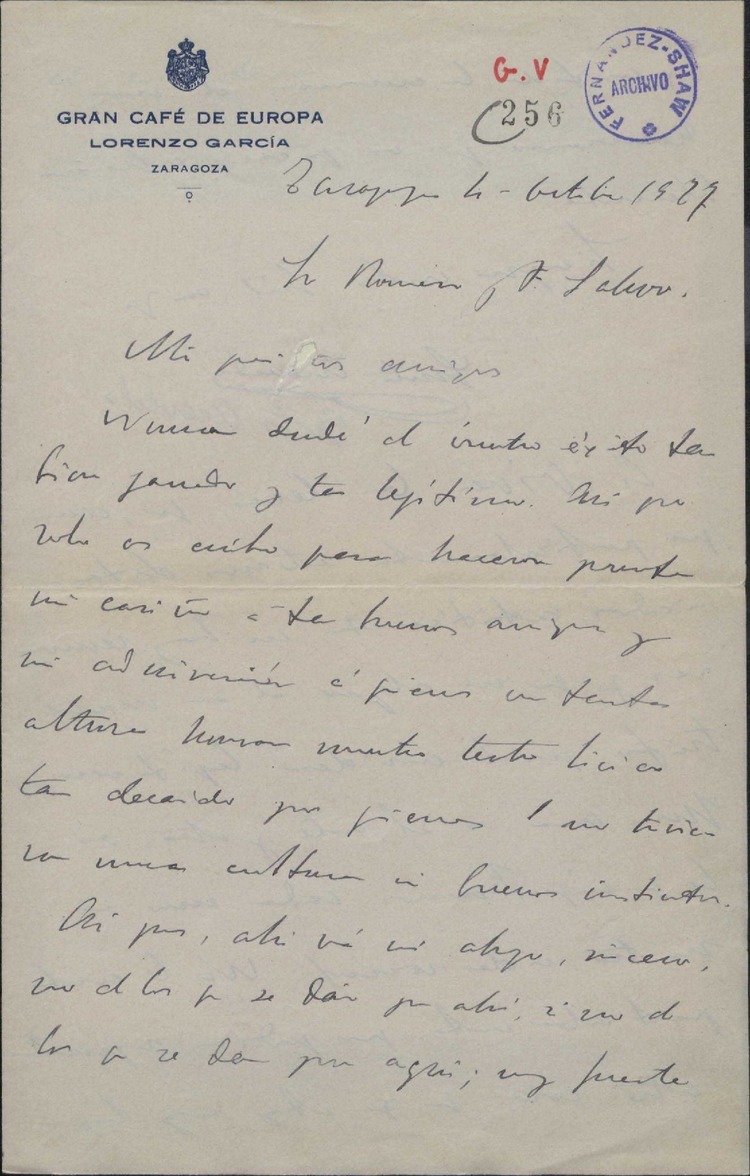 GRAN CAFÉ DE EUROPA
LORENZO GARCÍA
ZARAGOZA
G.V
256
FERNANDEZ-SHAW
ARCHIVO
Zaragoza 4 - Octubre 1927
Sr Romero y F. Sahw.
Mis queridos amigos
Nunca dudé del éxito tan
bien ganado y tan legítimo. Asi que
solo os escribo para haceros presente
mi cariño a tan buenos amigos y
mi admiración á quienes en tanta
altura honran nuestro teatro lírico
tan decaido por quienes no tuvie-
ron nunca cultura ni buenos instintos.
Asi pues, ahi vá mi abrazo, sincero,
no de los q se dán por ahí, si no de
los q se dan por aquí; muy fuerte